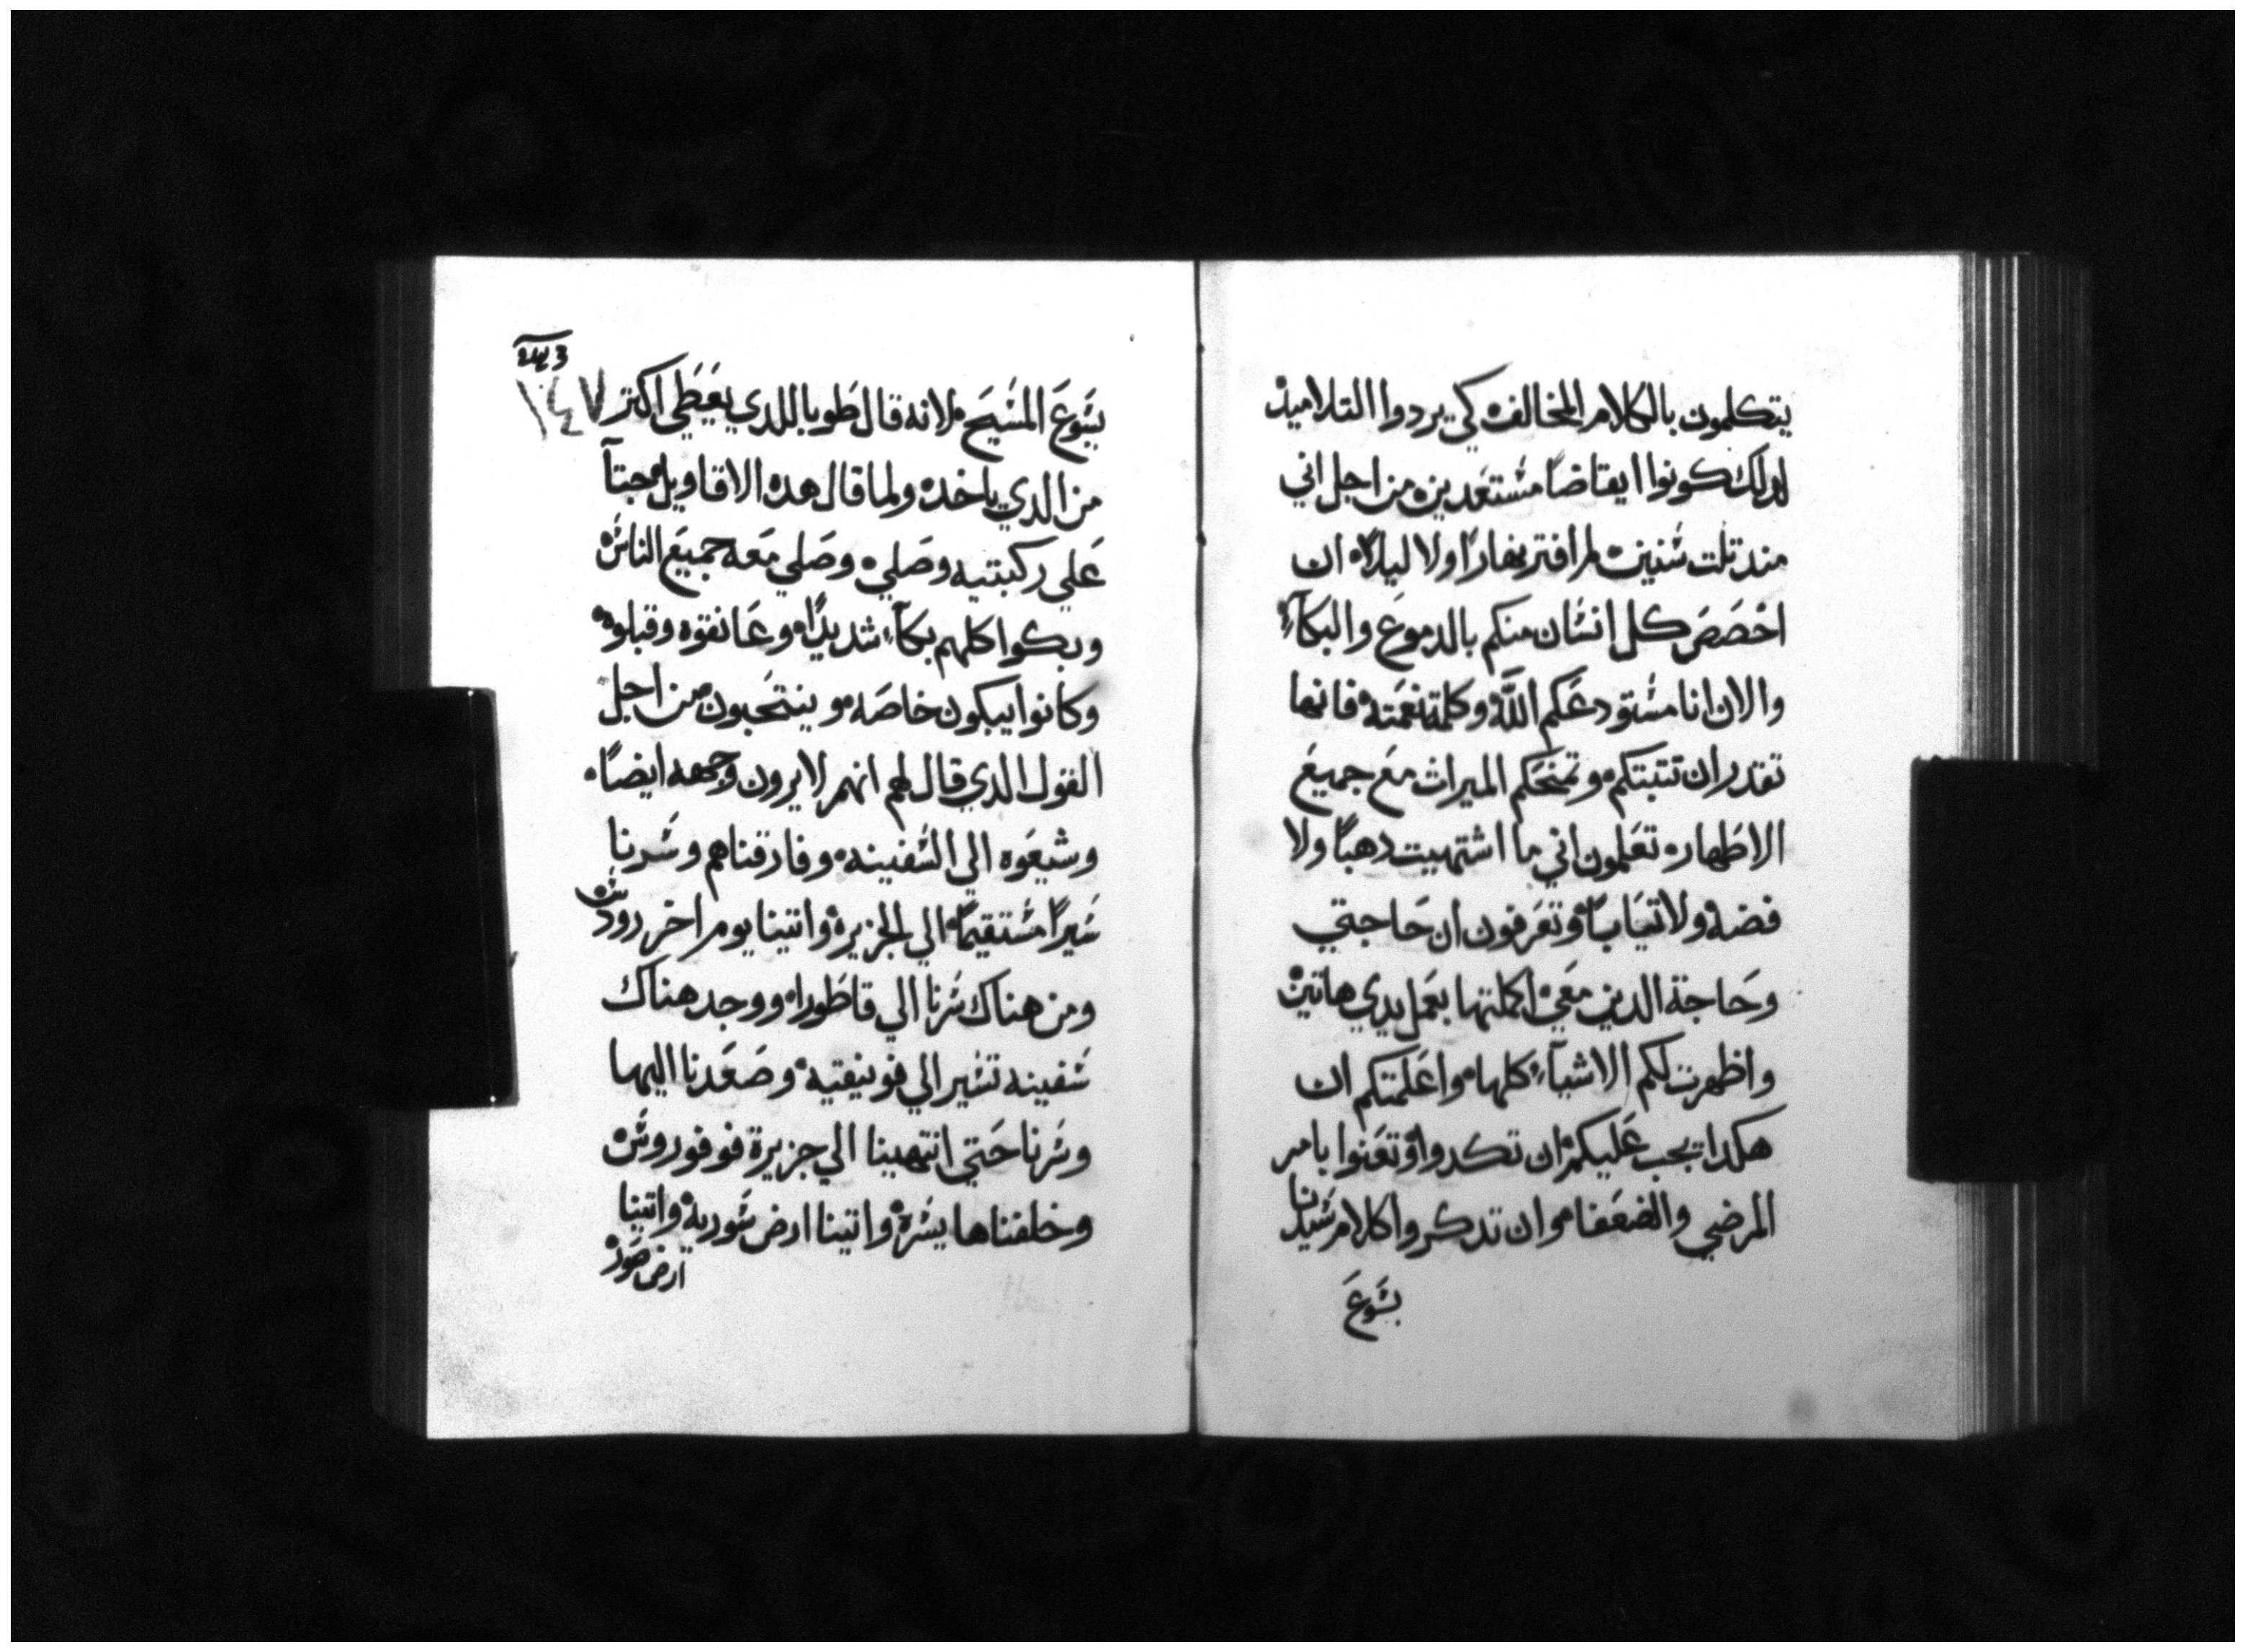 يتكلمون بالكلام المخالف كي يردوا التلاميد
لدلك كونوا ايقاضاً مستعدين من اجل اني
مند تلت سنين لم افتر نهاراً ولا ليلاً ان
اخصص كل انسان منكم بالدموع والبكآء
والان انا مستودعكم اللّه وكلمة نعمته فانها
تقدر ان تتبتكم وتمنحكم الميراث مع جميع
الاطهار تعلمون اني ما اشتهيت دهباً ولا
فضه ولا تياباً وتعرفون ان حاجتي
وحاجة الدين معي اكملتها بعمل يدي هاتين
واظهرت لكم الاشيآء كلها واعلمتكم ان
هكدا يجب عليكم ان تكدوا وتعنوا بامر
المرضي والضعفا وان تدكروا كلام سيدنا
يسوع
١٤٧
يسوع المسيح لانه قال طوبا للدي يعطي اكتر
من الدي ياخد ولما قال هده الاقاويل جتآ
علي ركبتيه وصلي وصلي معه جميع الناس
وبكوا كلهم بكآء شديداً وعانقوه وقبلوه
وكانوا يبكون خاصه وينتحبون من اجل
القول الدي قال لهم انهم لا يرون وجهه ايضاً
وشيعوه الي السفينه وفارقناهم وسرنا
سيراً مستقيماً الي الجزيرة واتينا يوم اخر رودس
ومن هناك سرنا الي قاطورا ووجد هناك
سفينه تسير الي فونيقيه وصعدنا اليها
وسرنا حتي انتهينا الي جزيرة قوفوروس
وخلفناها يسرة واتينا ارض سورية واتينا
ارض صور